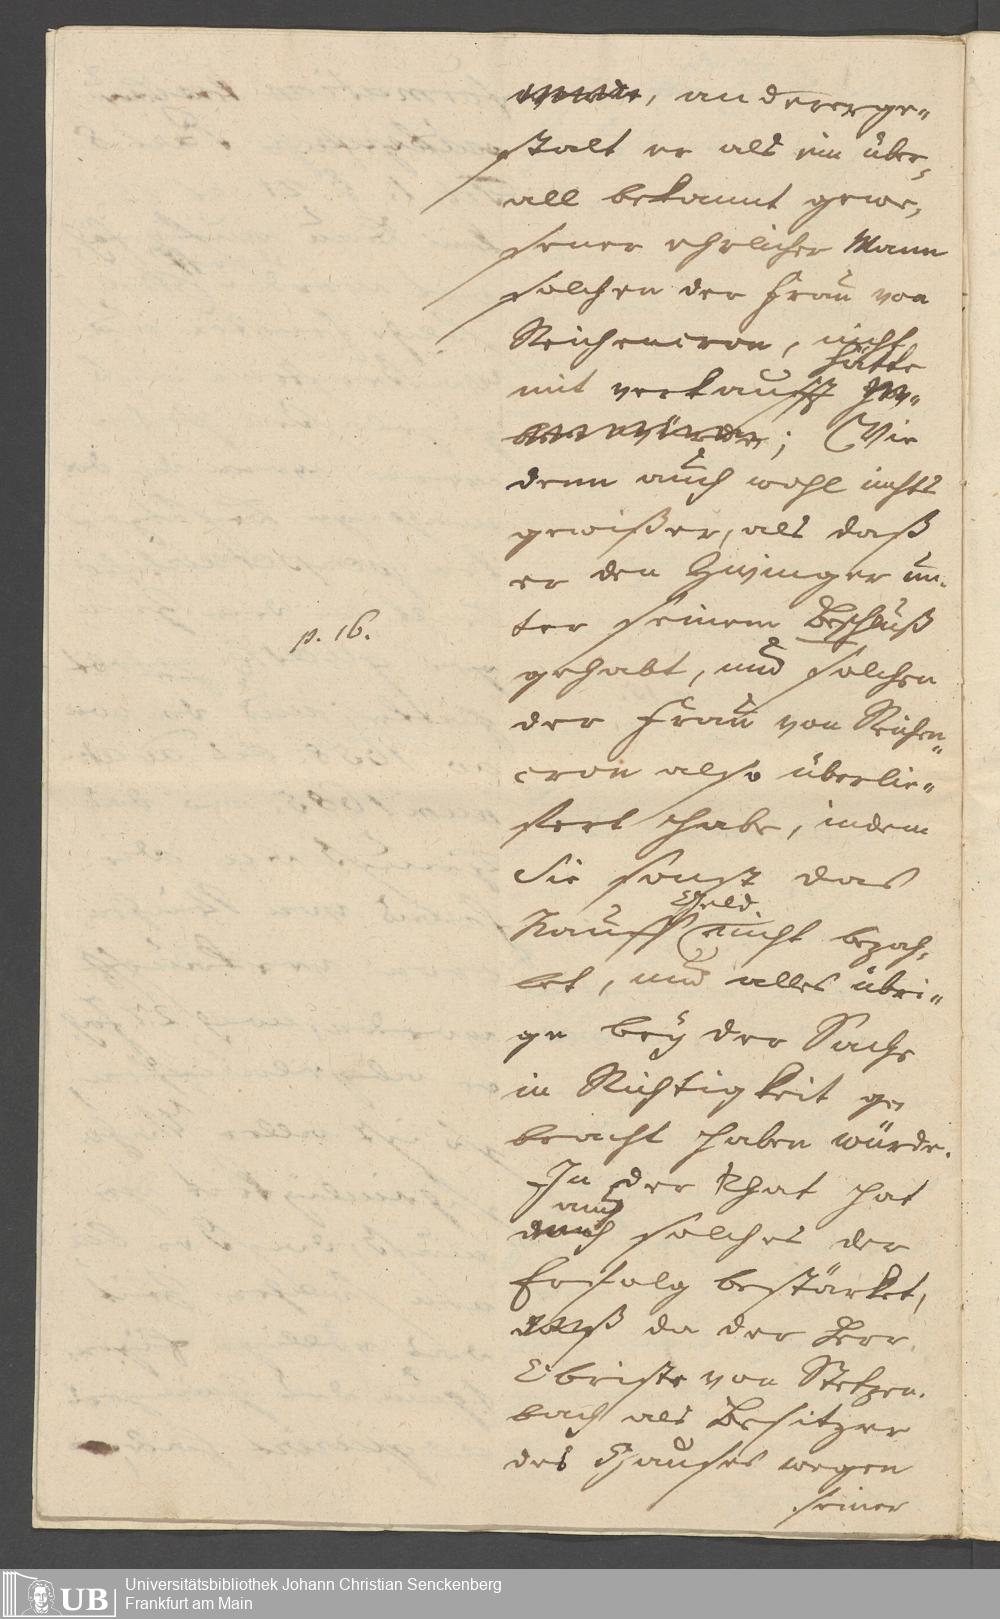 andererge=
stalt er als ein über,
all bekannt gewe,
sener ehrlicher Mann
solchen der Frau von
Reicheneron, nicht
hätte
mit verkaufft
; Wie
denn auch wohl nichts
gewißer, als daß
er den Zwinger un-
ter seinem Beschluß
p. 16.
gehabt, und solchen
der Frau von Reichen=
eron also überlie=
fert habe, indem
Sie sonst das
Geld
Kauff nicht bezah,
let, und alles übri=
ge bey der Sache
in Richtigkeit ge,
bracht haben würde.
In der That hat
auch
solches der
Erfolg bestärket,
da der Herr
Obriste von Stetzen,
bach als Besitzer
des Hauses wegen
seiner
UB
Universitätsbibliothek Johann Christian Senckenberg
Frankfurt am Main